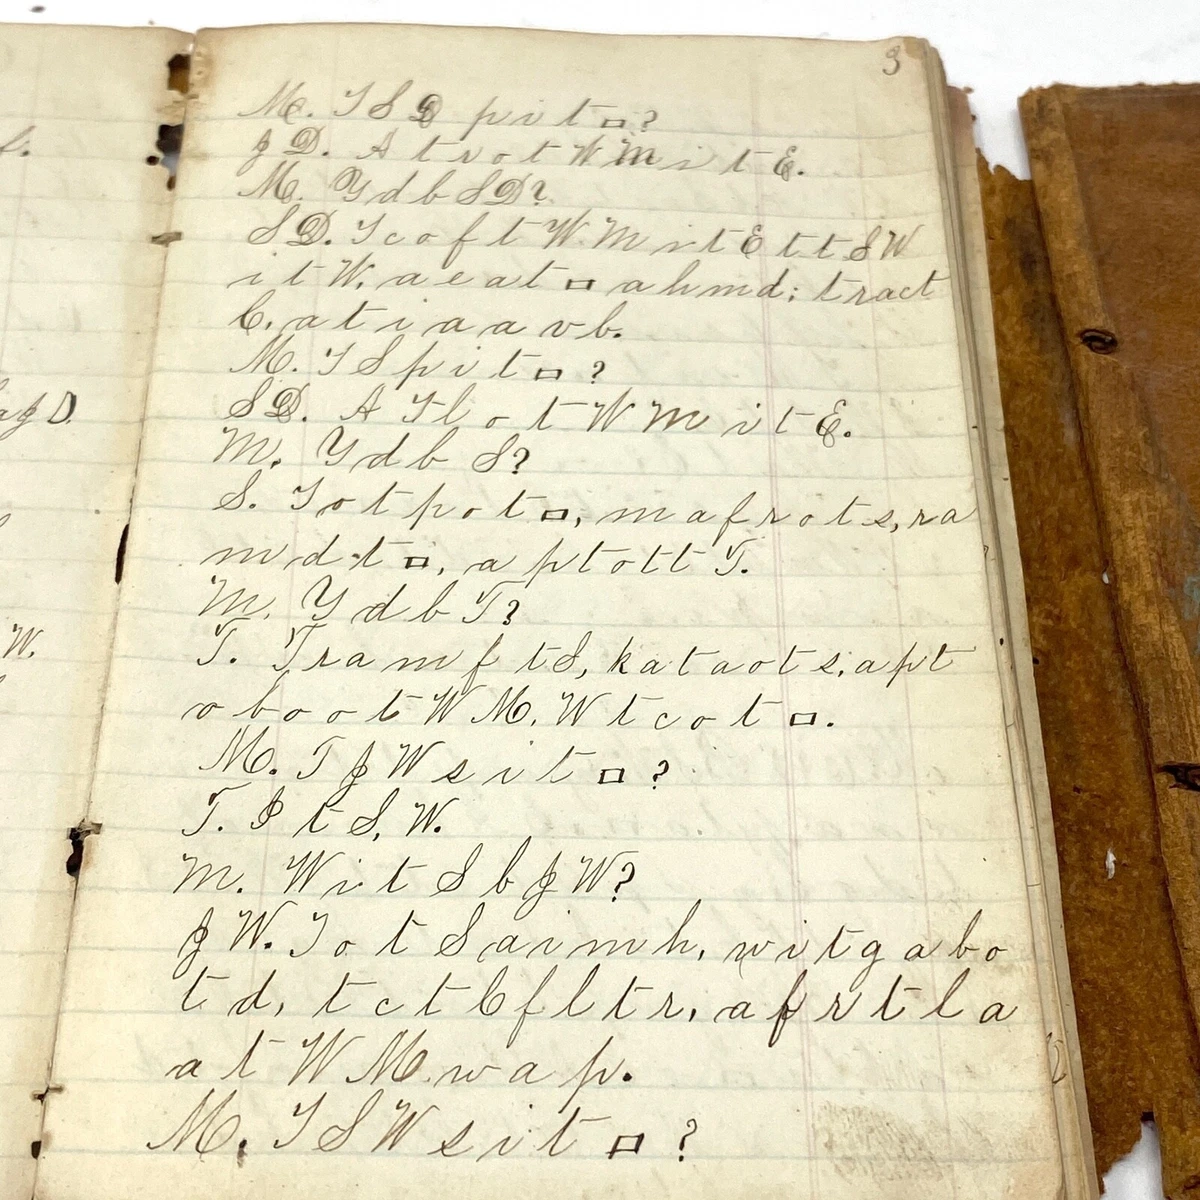 3
M. T S D p i t □ ?
J D. A t r o t W M i t E.
M. Y d b S D?
S D. T c o f t W. M i t E t t S W
i t W. a e a t □ a h m d; t r a c t
C. a t i a a v b.
M. T S p i t □ ?
S D. A T l o t W M i t E.
M. Y d b S?
S. T o t p o t □, m a f r o t s, r a
m d t □, a p t o t t T.
M. Y d b T?
T. T r a m f t S, k a t a o t s. a p t
o b o o t W M. W t c o t □.
M. T J W s i t □ ?
T. I t S, W.
M. W i t S b J W?
J W. T o t S a i m h, w i t g a b o
t d, t c t C f l t r, a f r t l a
a t W M. w a p.
M. T S W s i t □ ?
W.